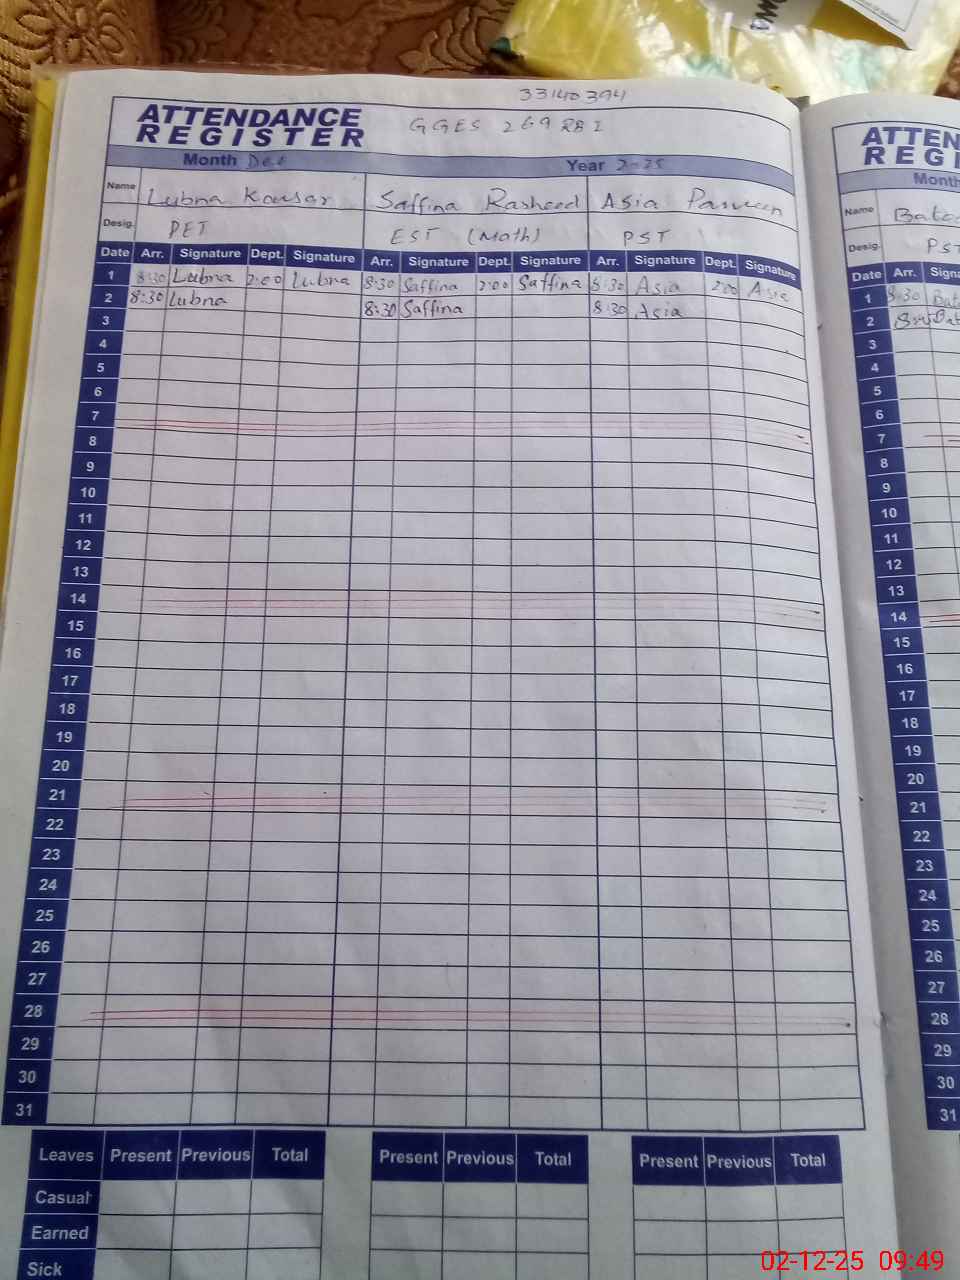 33140394
ATTENDANCE
REGISTER
GGES 269 RB I
Month Dec Year 2025
Name Lubna Kousar Saffina Rasheed Asia Parveen
Desig. PET EST (Math) PST
Date Arr. Signature Dept. Signature Arr. Signature Dept. Signature Arr. Signature Dept. Signature
1 8:30 Lubna 2:00 Lubna 8:30 Saffina 2:00 Saffina 8:30 Asia 2:00 Asia
2 8:30 Lubna 8:30 Saffina 8:30 Asia
3
4
5
6
7
8
9
10
11
12
13
14
15
16
17
18
19
20
21
22
23
24
25
26
27
28
29
30
31
Leaves Present Previous Total Present Previous Total Present Previous Total
Casual
Earned
Sick
ATTEN
REGI
Month
Name
Desig. PST
Date Arr. Signa
1 8:30
2
3
4
5
6
7
8
9
10
11
12
13
14
15
16
17
18
19
20
21
22
23
24
25
26
27
28
29
30
31
02-12-25 09:49